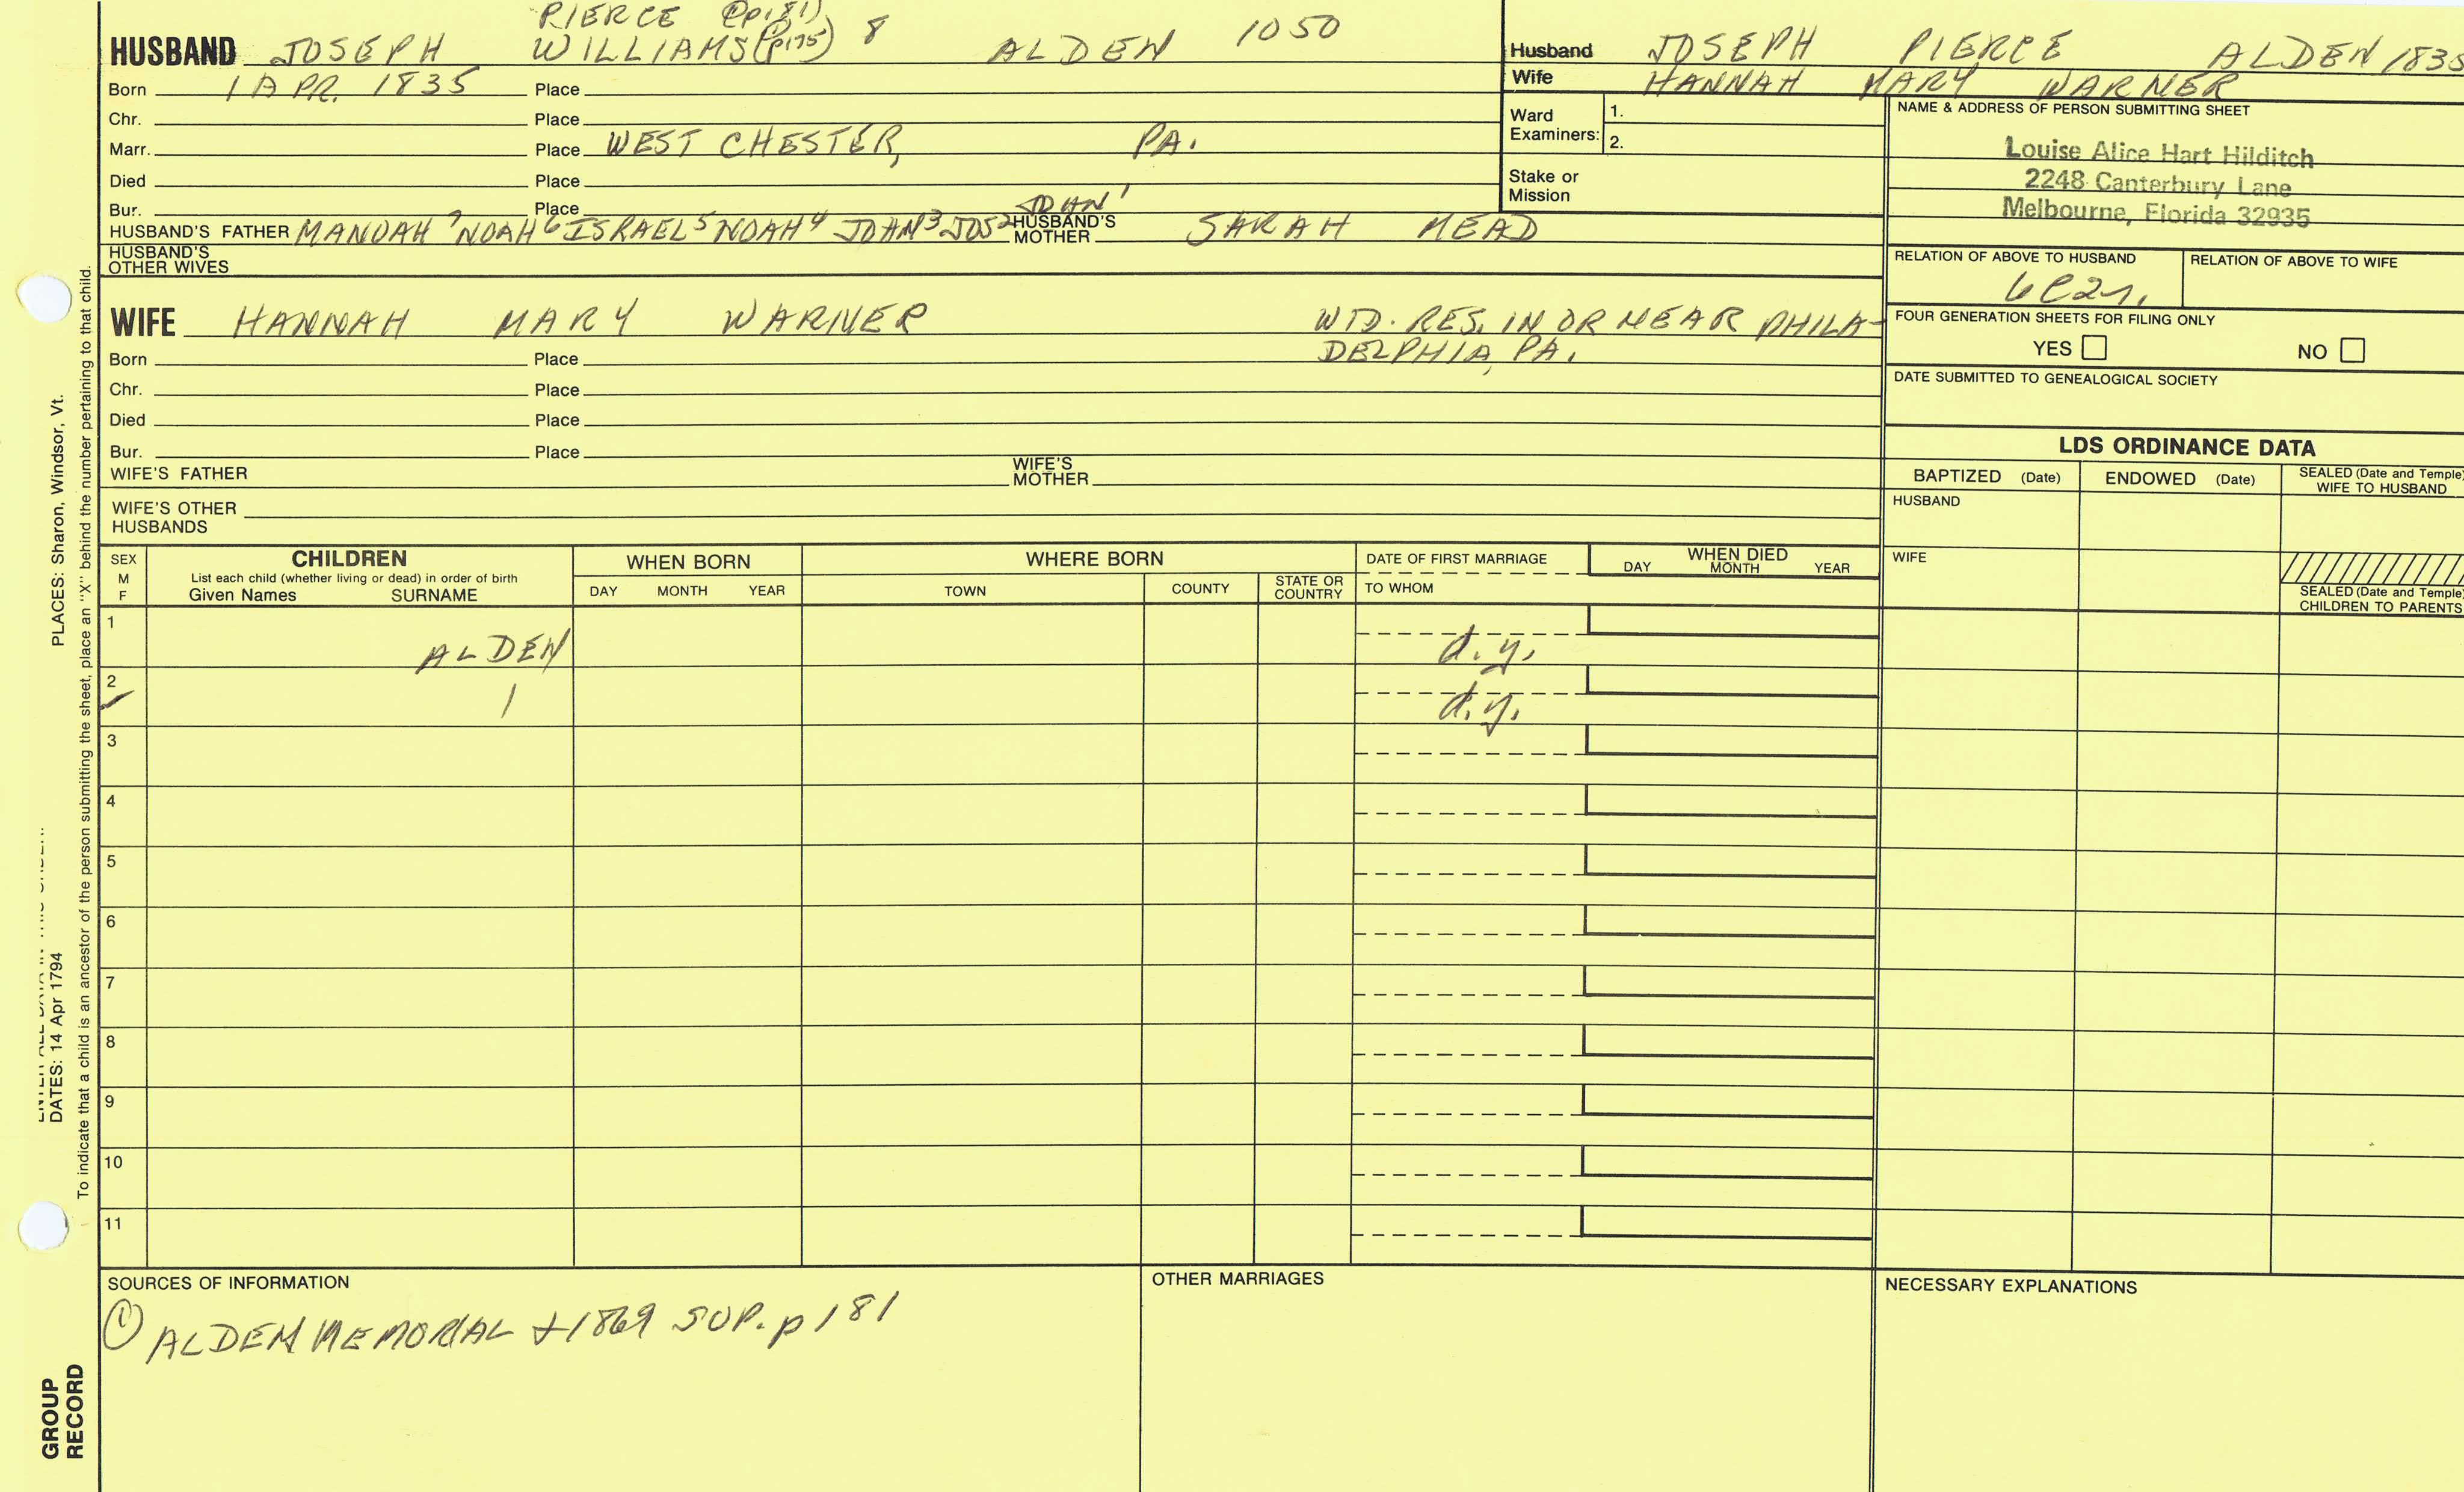 PIERCE (p181)
HUSBAND JOSEPH WILLIAMS (p175) 8 ALDEN 1050
Born 1 APR. 1835 Place
Chr. Place
Marr. Place WEST CHESTER, PA.
Died Place
Bur. Place
HUSBAND'S FATHER MANOAH 7 NOAH 6 ISRAEL 5 NOAH 4 JOHN 3 JOS 2 JOHN 1 HUSBAND'S MOTHER SARAH MEAD
HUSBAND'S OTHER WIVES
WIFE HANNAH MARY WARNER WTD. RES. IN OR NEAR PHILA-
DELPHIA, PA.
Born Place
Chr. Place
Died Place
Bur. Place
WIFE'S FATHER WIFE'S MOTHER
WIFE'S OTHER HUSBANDS
Husband JOSEPH PIERCE ALDEN 1835
Wife HANNAH MARY WARNER
Ward Examiners: 1.
2.
Stake or Mission
NAME & ADDRESS OF PERSON SUBMITTING SHEET
Louise Alice Hart Hilditch
2248 Canterbury Lane
Melbourne, Florida 32935
RELATION OF ABOVE TO HUSBAND RELATION OF ABOVE TO WIFE
6C2r.
FOUR GENERATION SHEETS FOR FILING ONLY
YES NO
DATE SUBMITTED TO GENEALOGICAL SOCIETY
LDS ORDINANCE DATA
BAPTIZED (Date) ENDOWED (Date) SEALED (Date and Temple) WIFE TO HUSBAND
HUSBAND
WIFE
SEALED (Date and Temple) CHILDREN TO PARENTS
SEX M F CHILDREN WHEN BORN WHERE BORN DATE OF FIRST MARRIAGE WHEN DIED
List each child (whether living or dead) in order of birth
Given Names SURNAME DAY MONTH YEAR TOWN COUNTY STATE OR COUNTRY TO WHOM DAY MONTH YEAR
1 ALDEN d.y.
2 d.y.
3
4
5
6
7
8
9
10
11
SOURCES OF INFORMATION
① ALDEN MEMORIAL + 1869 SUP. p 181
OTHER MARRIAGES
NECESSARY EXPLANATIONS
PLACES: Sharon, Windsor, Vt.
DATES: 14 Apr 1794
To indicate that a child is an ancestor of the person submitting the sheet, place an "X" behind the number pertaining to that child.
GROUP
RECORD